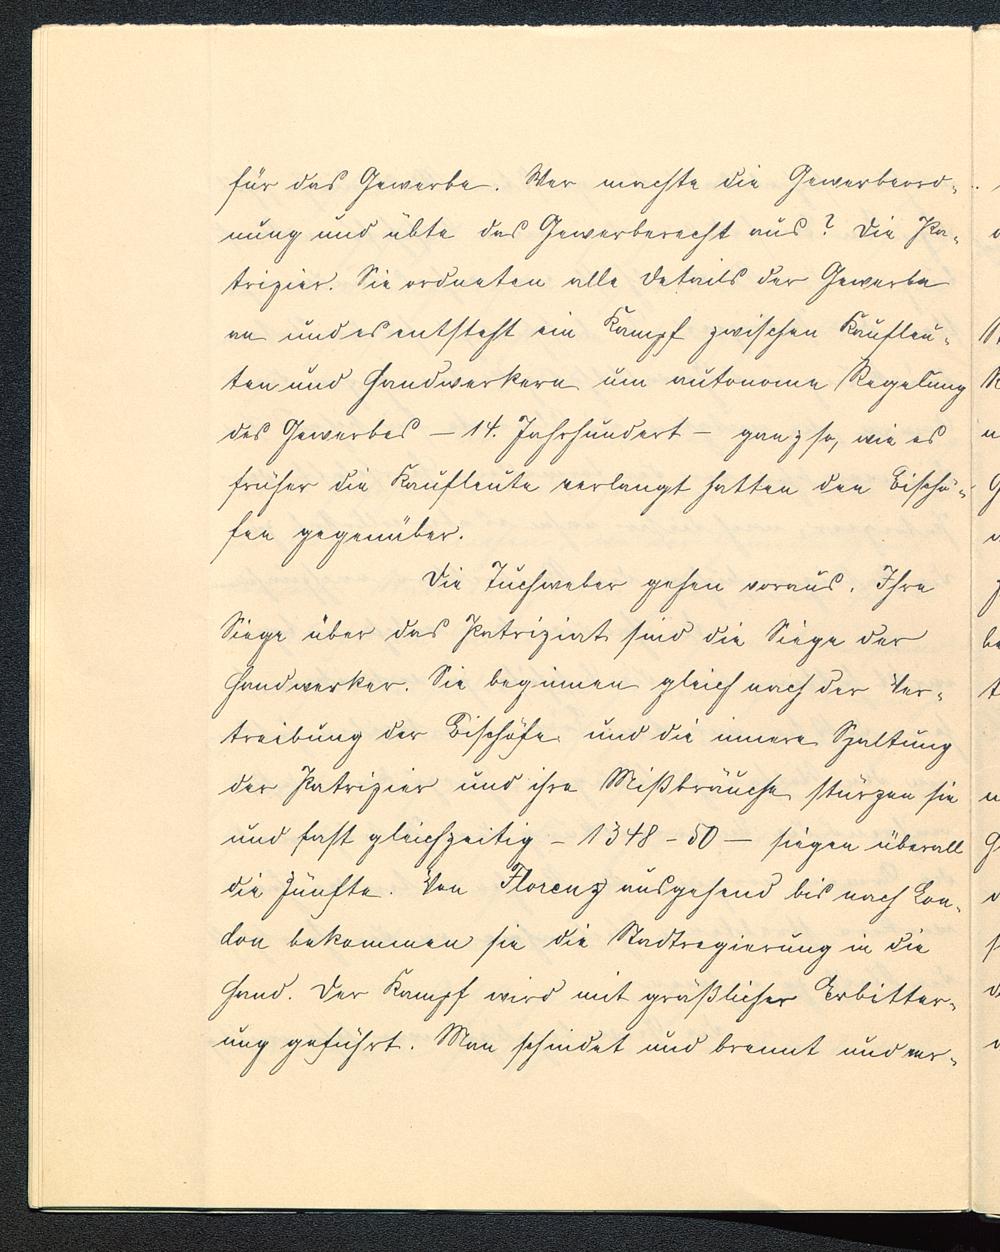 für das Gewerbe. Wer machte die Gewerbeord-
nung und übte das Gewerberecht aus? Die Pa-
trizier. Sie ordneten alle Details der Gewerbe
an und es entsteht ein Kampf zwischen Kaufleu-
ten und Handwerkern um autonome Regelung
des Gewerbes – 14. Jahrhundert – ganz so, wie es
früher die Kaufleute verlangt hatten den Bischö-
fen gegenüber.
Die Tuchweber gehen voraus. Ihre
Siege über das Patriziat sind die Siege der
Handwerker. Sie beginnen gleich nach der Ver-
treibung der Bischöfe und die innere Spaltung
der Patrizier und ihre Mißbräuche stürzen sie
und fast gleichzeitig – 1348 – 50 – siegen überall
die Zünfte. Von Florenz ausgehend bis nach Lon-
don bekommen sie die Stadtregierung in die
Hand. Der Kampf wird mit gräßlicher Erbitter-
ung geführt. Man schindet und brennt und ver-